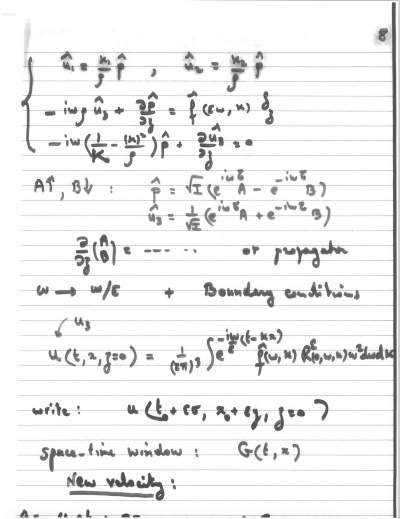 8
û₁ = κ₁/ρ p̂ , û₂ = κ₂/ρ p̂
- iωρ û₃ + ∂p̂/∂z = f̂ (εω, κ) δ_z
- iω (1/K - |κ|²/ρ) p̂ + ∂û₃/∂z = 0
A↑, B↓ : p̂ = √I (e^{iωτ} A - e^{-iωτ} B)
û₃ = 1/√I (e^{iωτ} A + e^{-iωτ} B)
∂/∂z (A B) = --- -- or propagator
ω → ω/ε + Boundary conditions
u₃
u (t, x, z=0) = 1/(2π)³ ∫ e^{-iω/ε (t-κx)} f̂(ω, κ) R^ε(0, ω, κ) ω² dω dκ
write : u (t₀ + εσ, x₀ + εy, z=0)
space-time window : G(t, x)
New velocity :